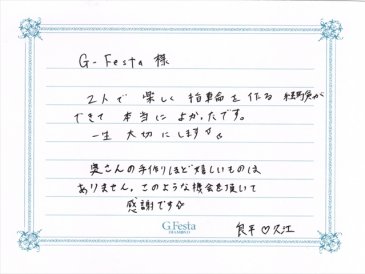 G-Festa 様
2人で楽しく指輪を作る経験が
できて本当によかったです。
一生大切にします☆
奥さんの手作りほど嬉しいものは
ありません。このような機会を頂いて
感謝です☆
G.Festa
DIAMIRO
良平♡久江